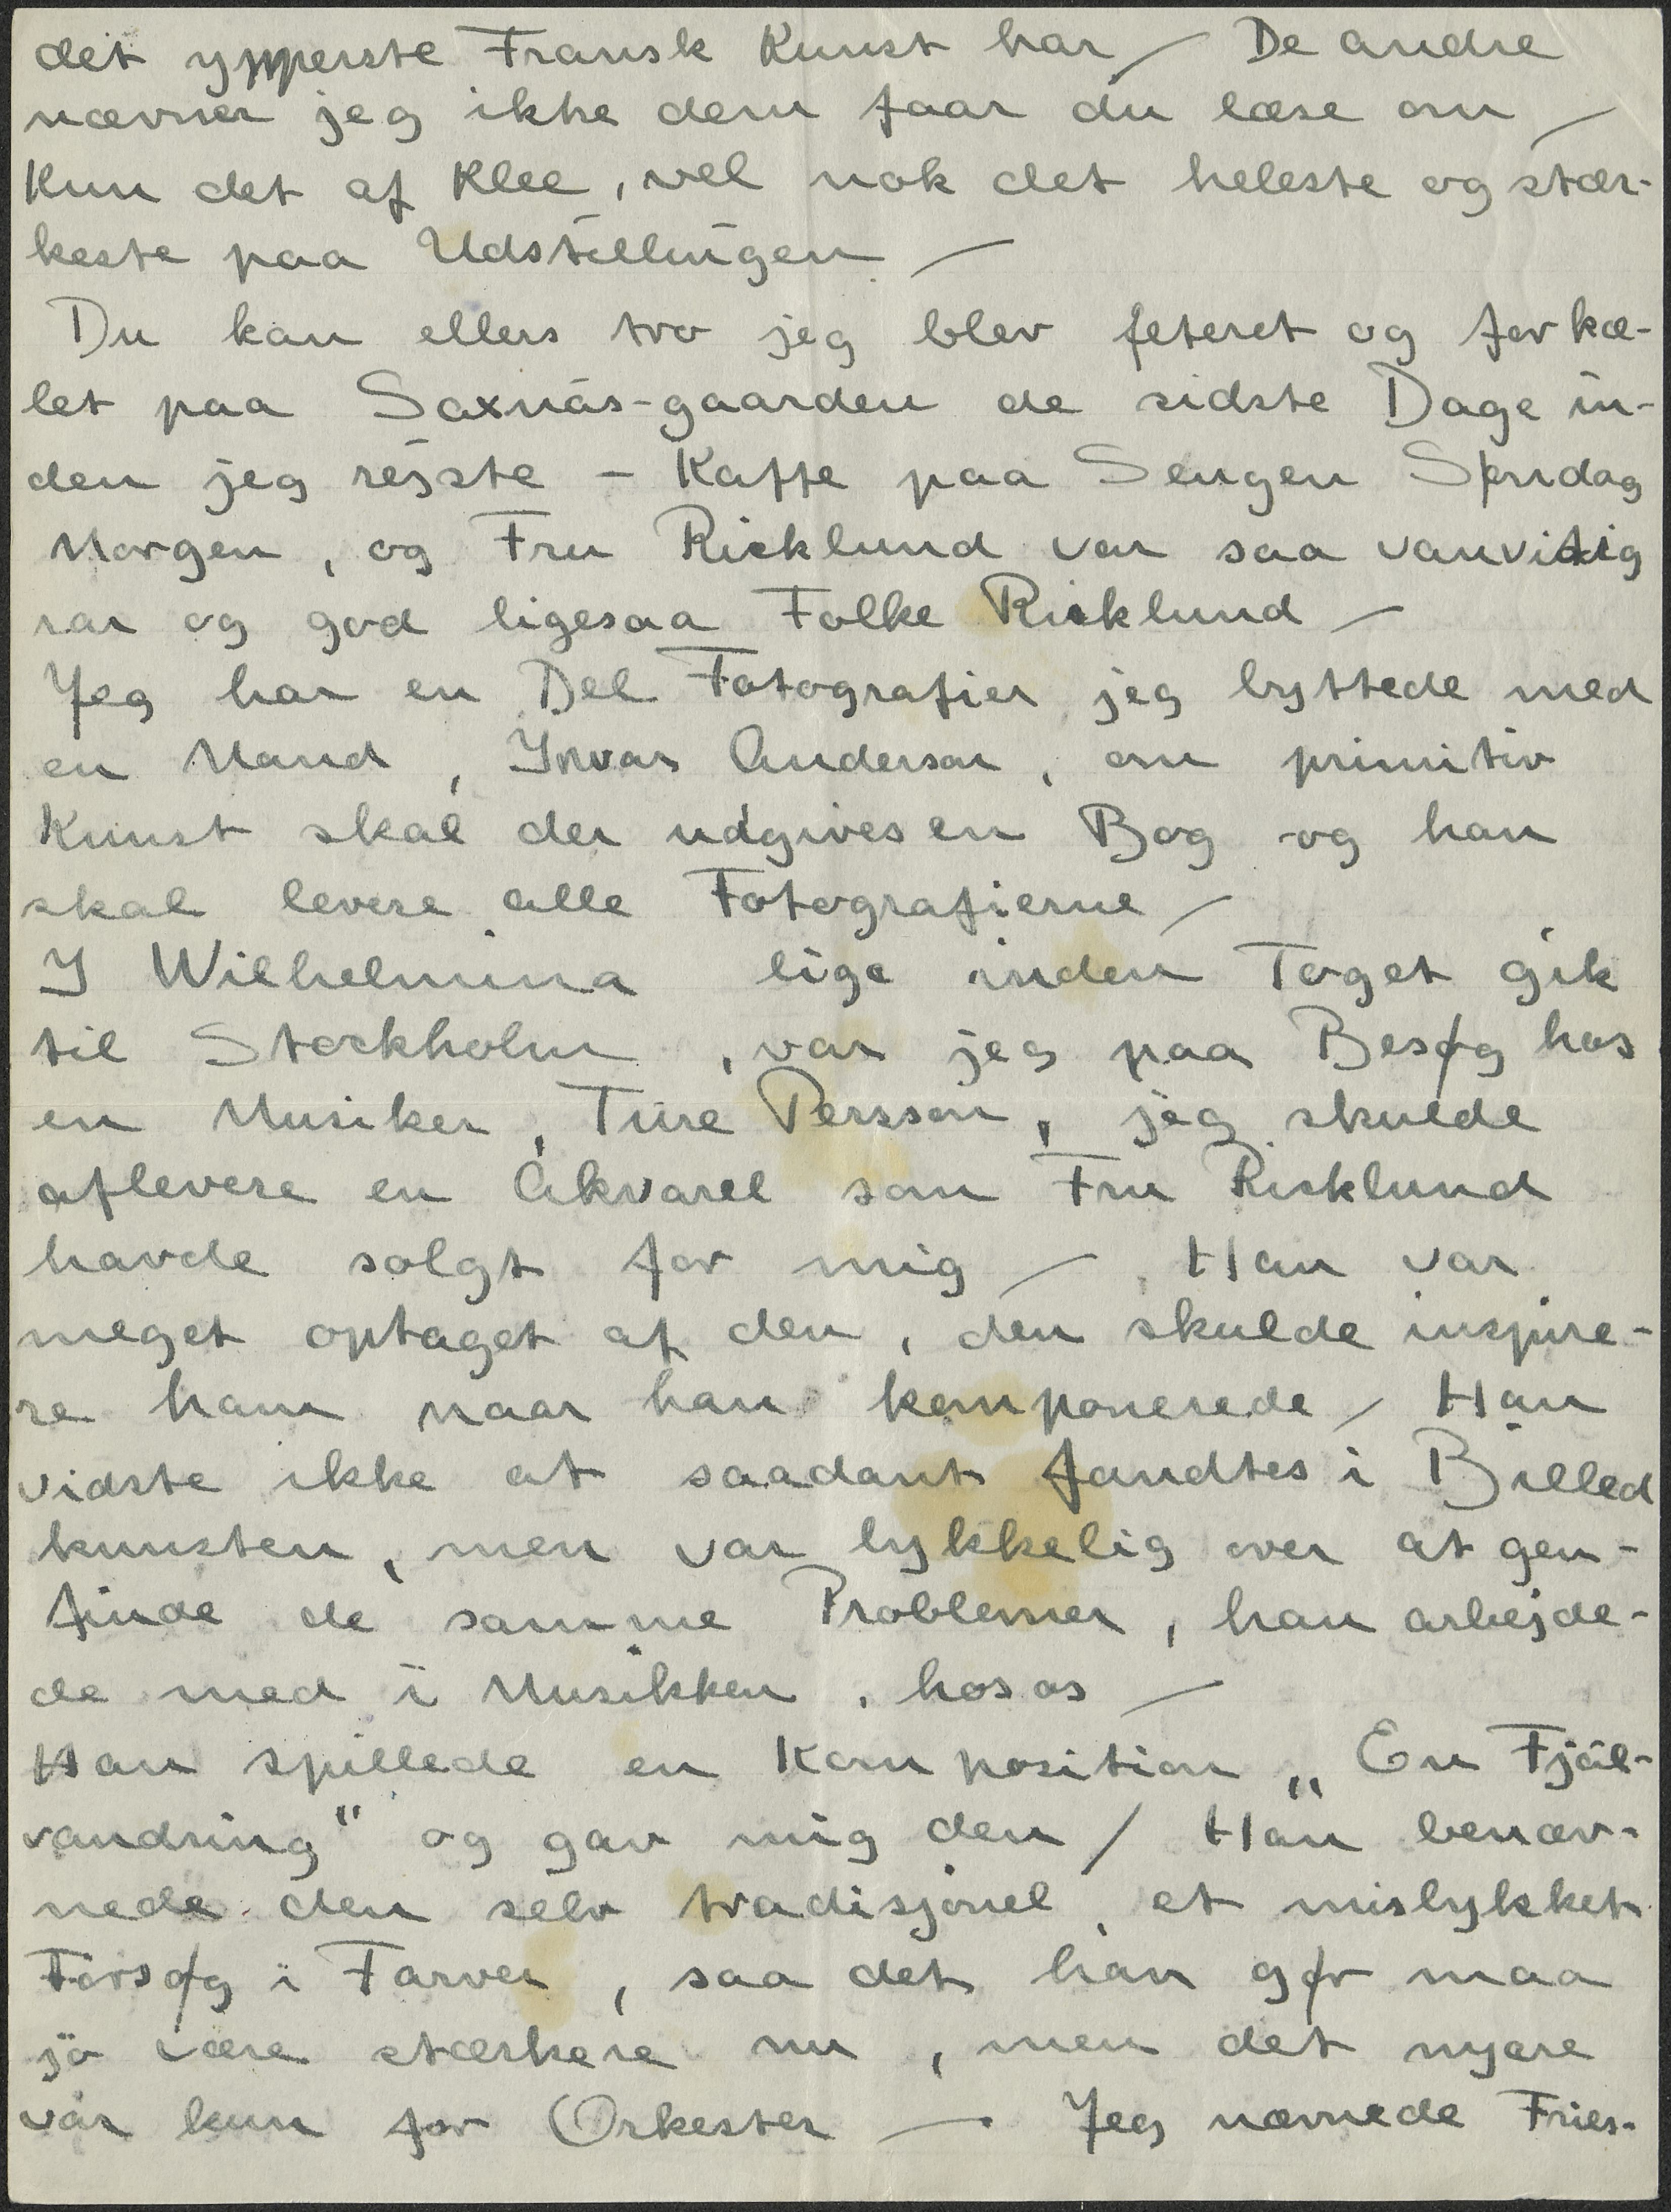 det ypperste Fransk Kunst har — De andre
nævner jeg ikke dem faar du læse om —
Kun det af Klee, vel nok det heleste og stær-
keste paa Udstillingen —
Du kan ellers tro jeg blev feteret og forkæ-
let paa Saxnäs-gaarden de sidste Dage in-
den jeg rejste – Kaffe paa Sengen Søndag
Morgen, og Fru Ricklund var saa vanvittig
rar og god ligesaa Folke Ricklund —
Jeg har en Del Fotografier jeg byttede med
en Mand, Invar Anderson, om primitiv
Kunst skal der udgives en Bog og han
skal levere alle Fotografierne —
I Wilhelmina lige inden Toget gik
til Stockholm, var jeg paa Besøg hos
en Musiker, Ture Persson, jeg skulde
aflevere en Akvarel som Fru Ricklund
havde solgt for mig — Han var
meget optaget af den, den skulde inspire-
re ham naar han komponerede — Han
vidste ikke at saadant fandtes i Billed
kunsten, men var lykkelig over at gen-
finde de samme Problemer, han arbejde-
de med i Musikken, hos os —
Han spillede en Komposition „En Fjäl-
vandring" og gav mig den / Han benæv-
nede den selv tradisjonel, et mislykket
Forsøg i Farver, saa det han gør maa
jo være stærkere nu, men det nyere
var kun for Orkester — Jeg nævnede Fries-